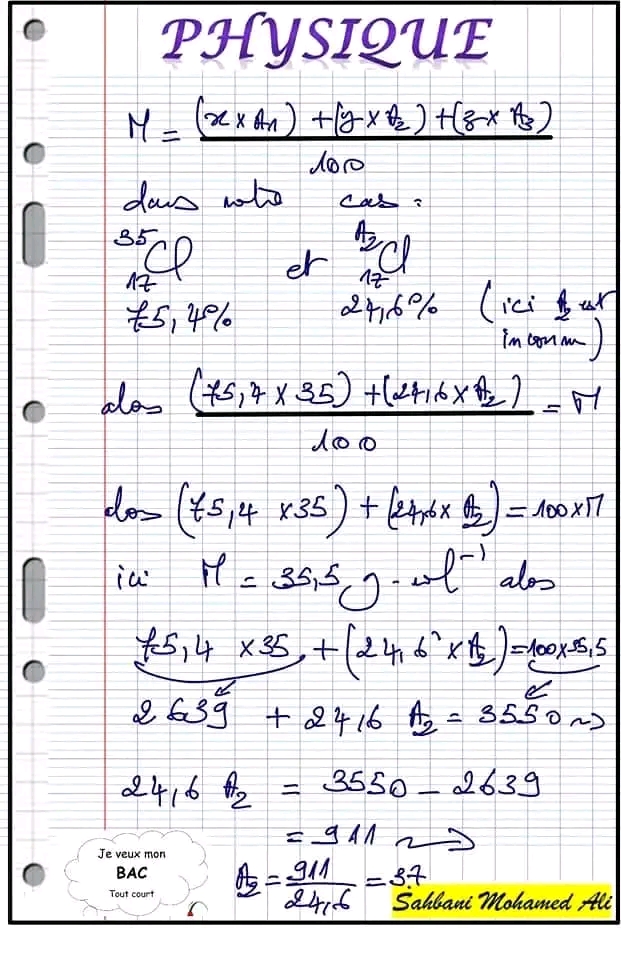 PHYSIQUE
M = (x × A1) + (y × A2) + (z × A3)
100
dans notre cas :
35 17 Cl et A2 17 Cl
75,4% 24,6% (ici A2 est
inconnu)
alors (75,4 × 35) + (24,6 × A2) = M
100
alors (75,4 × 35) + (24,6 × A2) = 100 × M
ici M = 35,5 g.mol⁻¹ alors
75,4 × 35 + (24,6 × A2) = 100 × 35,5
2639 + 24,6 A2 = 3550 ⇝
24,6 A2 = 3550 - 2639
= 911 ⇝
A2 = 911 / 24,6 = 37
Je veux mon
BAC
Tout court
Sahbani Mohamed Ali